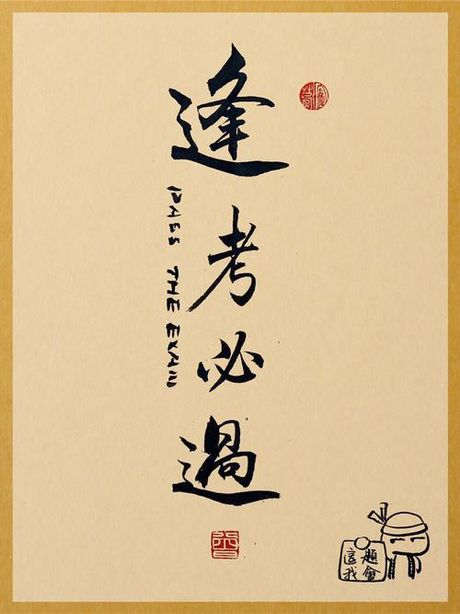 逢考必過
PASS THE EXAM
這題
我會